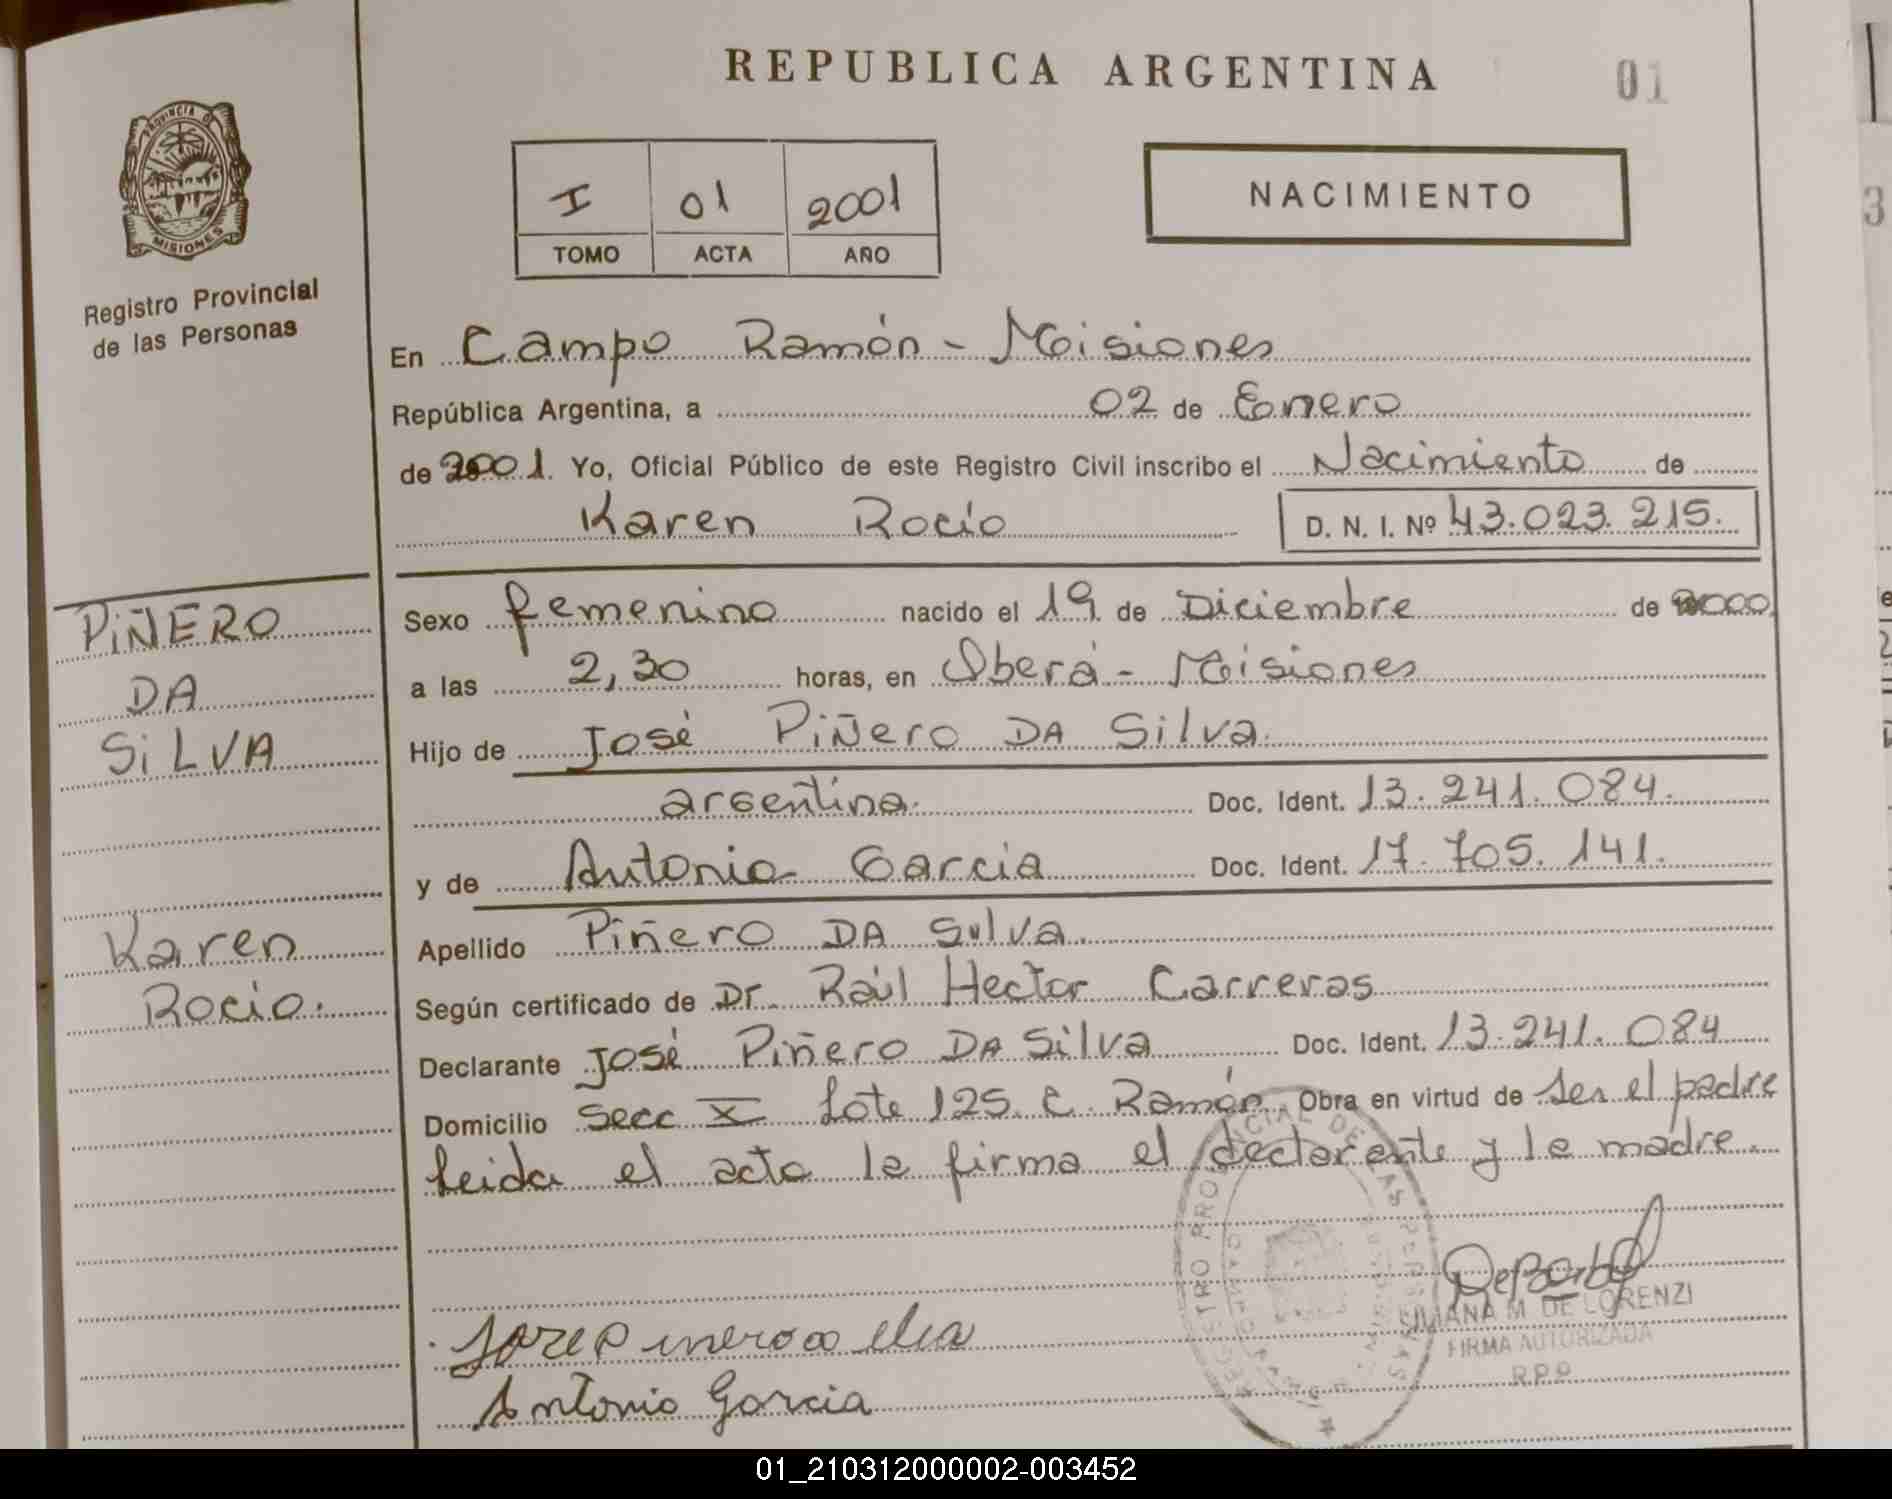 REPUBLICA ARGENTINA
01
PROVINCIA DE
MISIONES
Registro Provincial
de las Personas
I 01 2001
TOMO ACTA AÑO
NACIMIENTO
3
En Campo Ramón - Misiones
República Argentina, a 02 de Enero
de 2001. Yo, Oficial Público de este Registro Civil inscribo el Nacimiento de
Karen Rocío D. N. I. Nº 43.023.215.
PIÑERO
DA
SiLVA
Karen
Rocio.
Sexo femenino nacido el 19 de Diciembre de 2000
a las 2,30 horas, en Oberá - Misiones
Hijo de José Piñero DA Silva.
argentina. Doc. Ident. 13.241.084.
y de Antonia Garcia Doc. Ident. 17.705.141.
Apellido Piñero DA Silva.
Según certificado de Dr. Raúl Hector Carreras
Declarante José Piñero DA Silva Doc. Ident. 13.241.084
Domicilio Secc X Lote 125 C. Ramón Obra en virtud de ser el padre
leida el acta la firma el declarante y la madre.
REGISTRO PROVINCIAL DE LAS PERSONAS
LILIANA M. DE LORENZI
FIRMA AUTORIZADA
R.P.P
Antonia Garcia
01_210312000002-003452